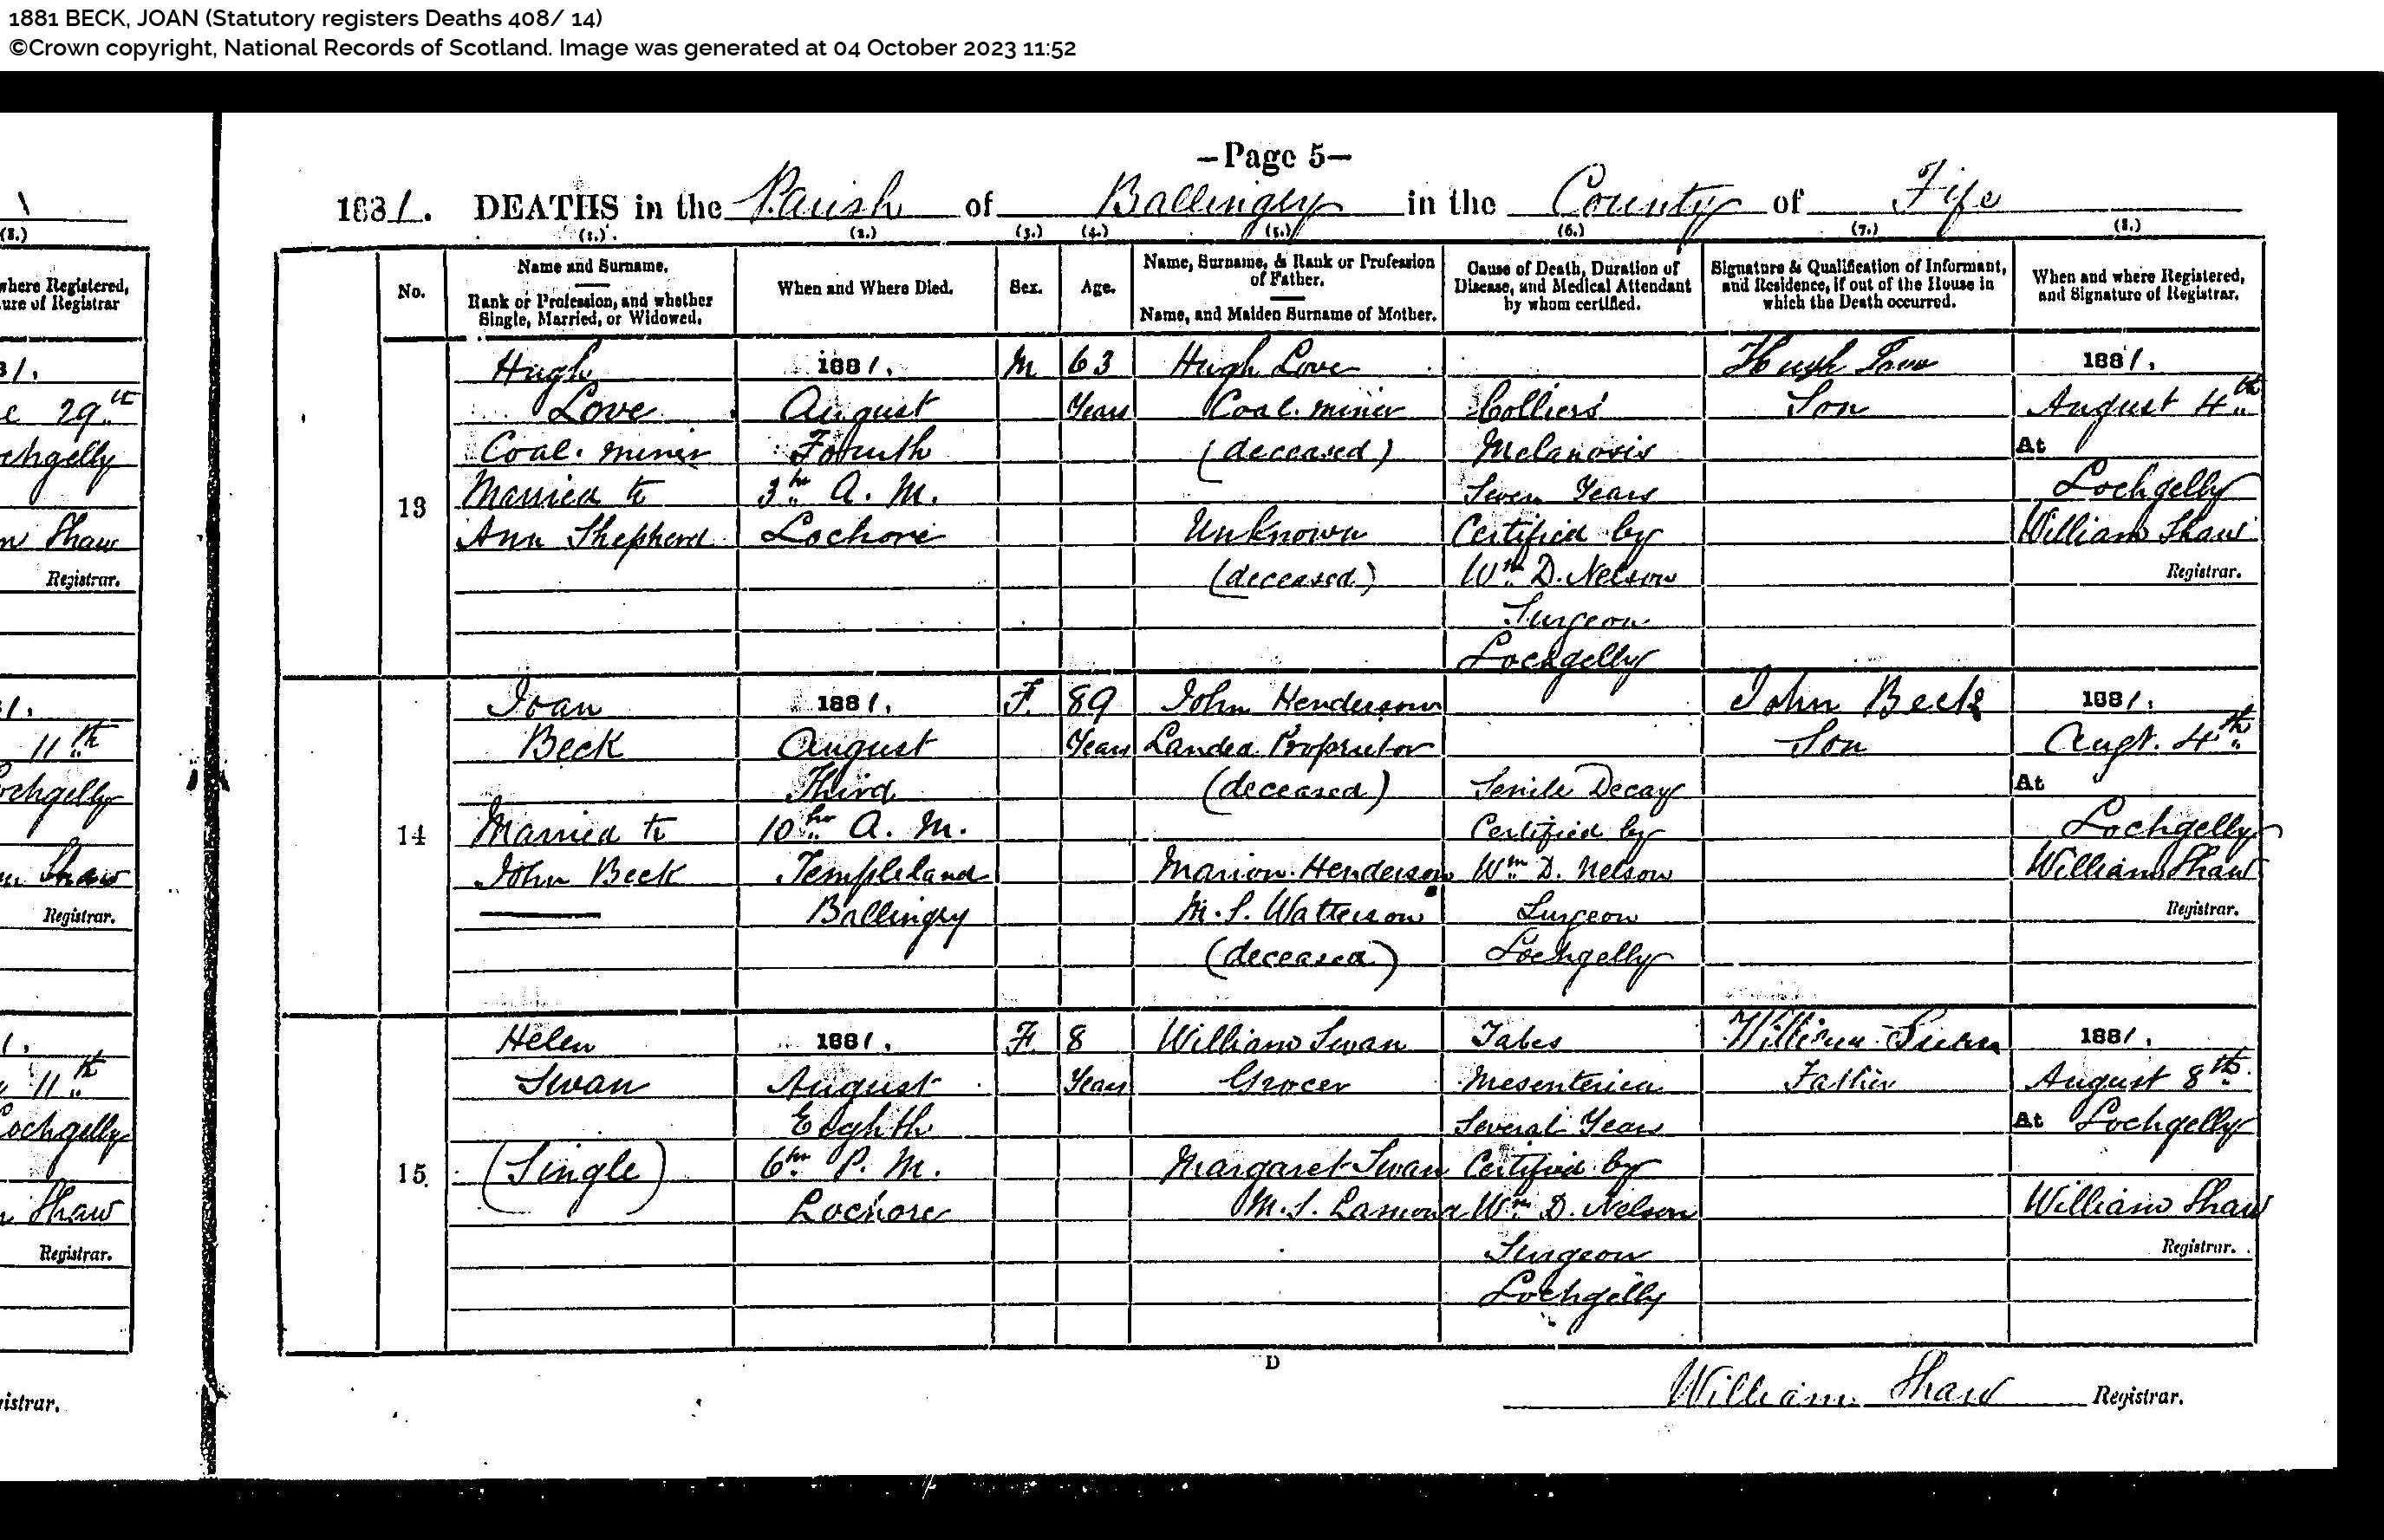 1881 BECK, JOAN (Statutory registers Deaths 408/ 14)
©Crown copyright, National Records of Scotland. Image was generated at 04 October 2023 11:52
—Page 5—
1881. DEATHS in the Parish of Ballingry in the County of Fife
(1.) (2.) (3.) (4.) (5.) (6.) (7.) (8.)
No.
Name and Surname.
Rank or Profession, and whether
Single, Married, or Widowed.
When and Where Died.
Sex.
Age.
Name, Surname, & Rank or Profession
of Father.
Name, and Maiden Surname of Mother.
Cause of Death, Duration of
Disease, and Medical Attendant
by whom certified.
Signature & Qualification of Informant,
and Residence, if out of the House in
which the Death occurred.
When and where Registered,
and Signature of Registrar.
13
Hugh
Love
Coal miner
Married to
Ann Shepherd
1881.
August
Fourth
3hr A. M.
Lochore
M
63
Years
Hugh Love
Coal miner
(deceased)
Unknown
(deceased)
Colliers'
Melanosis
Seven Years
Certified by
Wm D. Nelson
Surgeon
Lochgelly
Hugh Love
Son
1881.
August 4th
At
Lochgelly
William Shaw
Registrar.
14
Joan
Beck
Married to
John Beck
1881.
August
Third
10hr A. M.
Templeland
Ballingry
F.
89
Years
John Henderson
Landed Proprietor
(deceased)
Marion Henderson
M.S. Watterson
(deceased)
Senile Decay
Certified by
Wm D. Nelson
Surgeon
Lochgelly
John Beck
Son
1881.
Augt. 4th
At
Lochgelly
William Shaw
Registrar.
15
Helen
Swan
(Single)
1881.
August
Eighth
6hr P. M.
Lochore
F.
8
Years
William Swan
Grocer
Margaret Swan
M.S. Lamond
Tabes
Mesenterica
Several Years
Certified by
Wm D. Nelson
Surgeon
Lochgelly
William Swan
Father
1881.
August 8th
At Lochgelly
William Shaw
Registrar.
D
William Shaw Registrar.
where Registered,
ure of Registrar
29th
Shaw
Registrar.
11th
Shaw
Registrar.
11th
Shaw
Registrar.